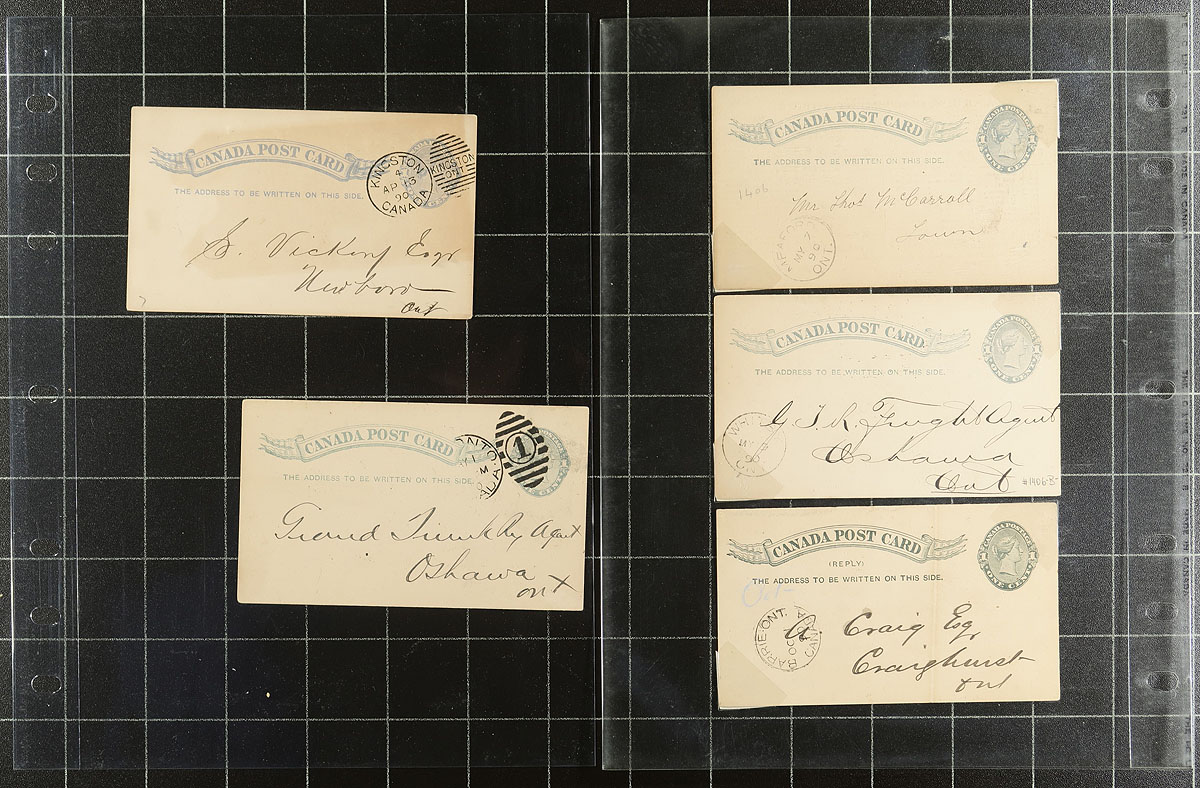 CANADA POST CARD
THE ADDRESS TO BE WRITTEN ON THIS SIDE.
KINGSTON
4
AP 13
90
CANADA
KINGSTON
ONT
S. Vickery Esqr
Newboro
Ont
CANADA POST CARD
THE ADDRESS TO BE WRITTEN ON THIS SIDE.
1
Grand Trunk Ry Agent
Oshawa
ont
CANADA POST CARD
CANADA POSTAGE
ONE CENT
THE ADDRESS TO BE WRITTEN ON THIS SIDE.
1406
Mr Thos McCarroll
Town
MY 7
90
ONT.
CANADA POST CARD
CANADA POSTAGE
ONE CENT
THE ADDRESS TO BE WRITTEN ON THIS SIDE.
G. T. R. Freight Agent
Oshawa
Ont
#1406-B-
CANADA POST CARD
CANADA POSTAGE
ONE CENT
(REPLY)
THE ADDRESS TO BE WRITTEN ON THIS SIDE.
BARRIE-ONT.
OC
CANADA
A. Craig Esq
Craighurst
ont